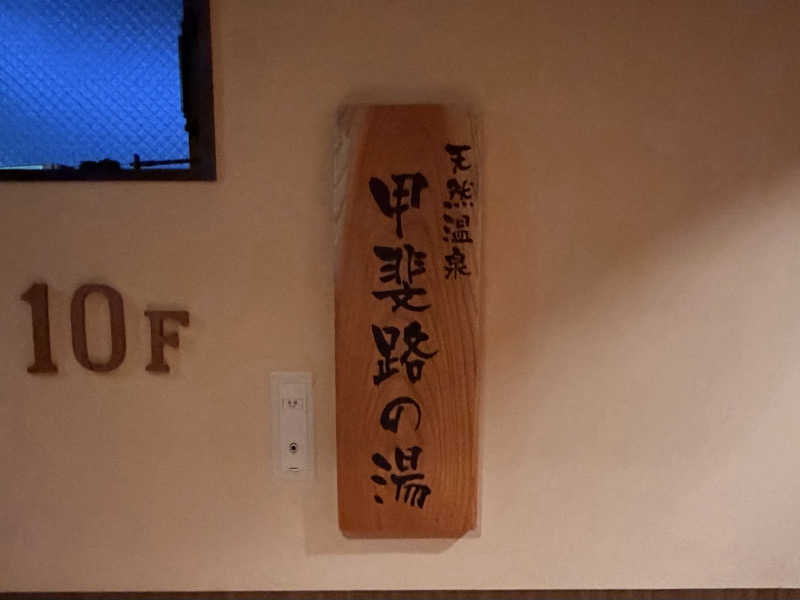 天然温泉
甲斐路の湯
10F